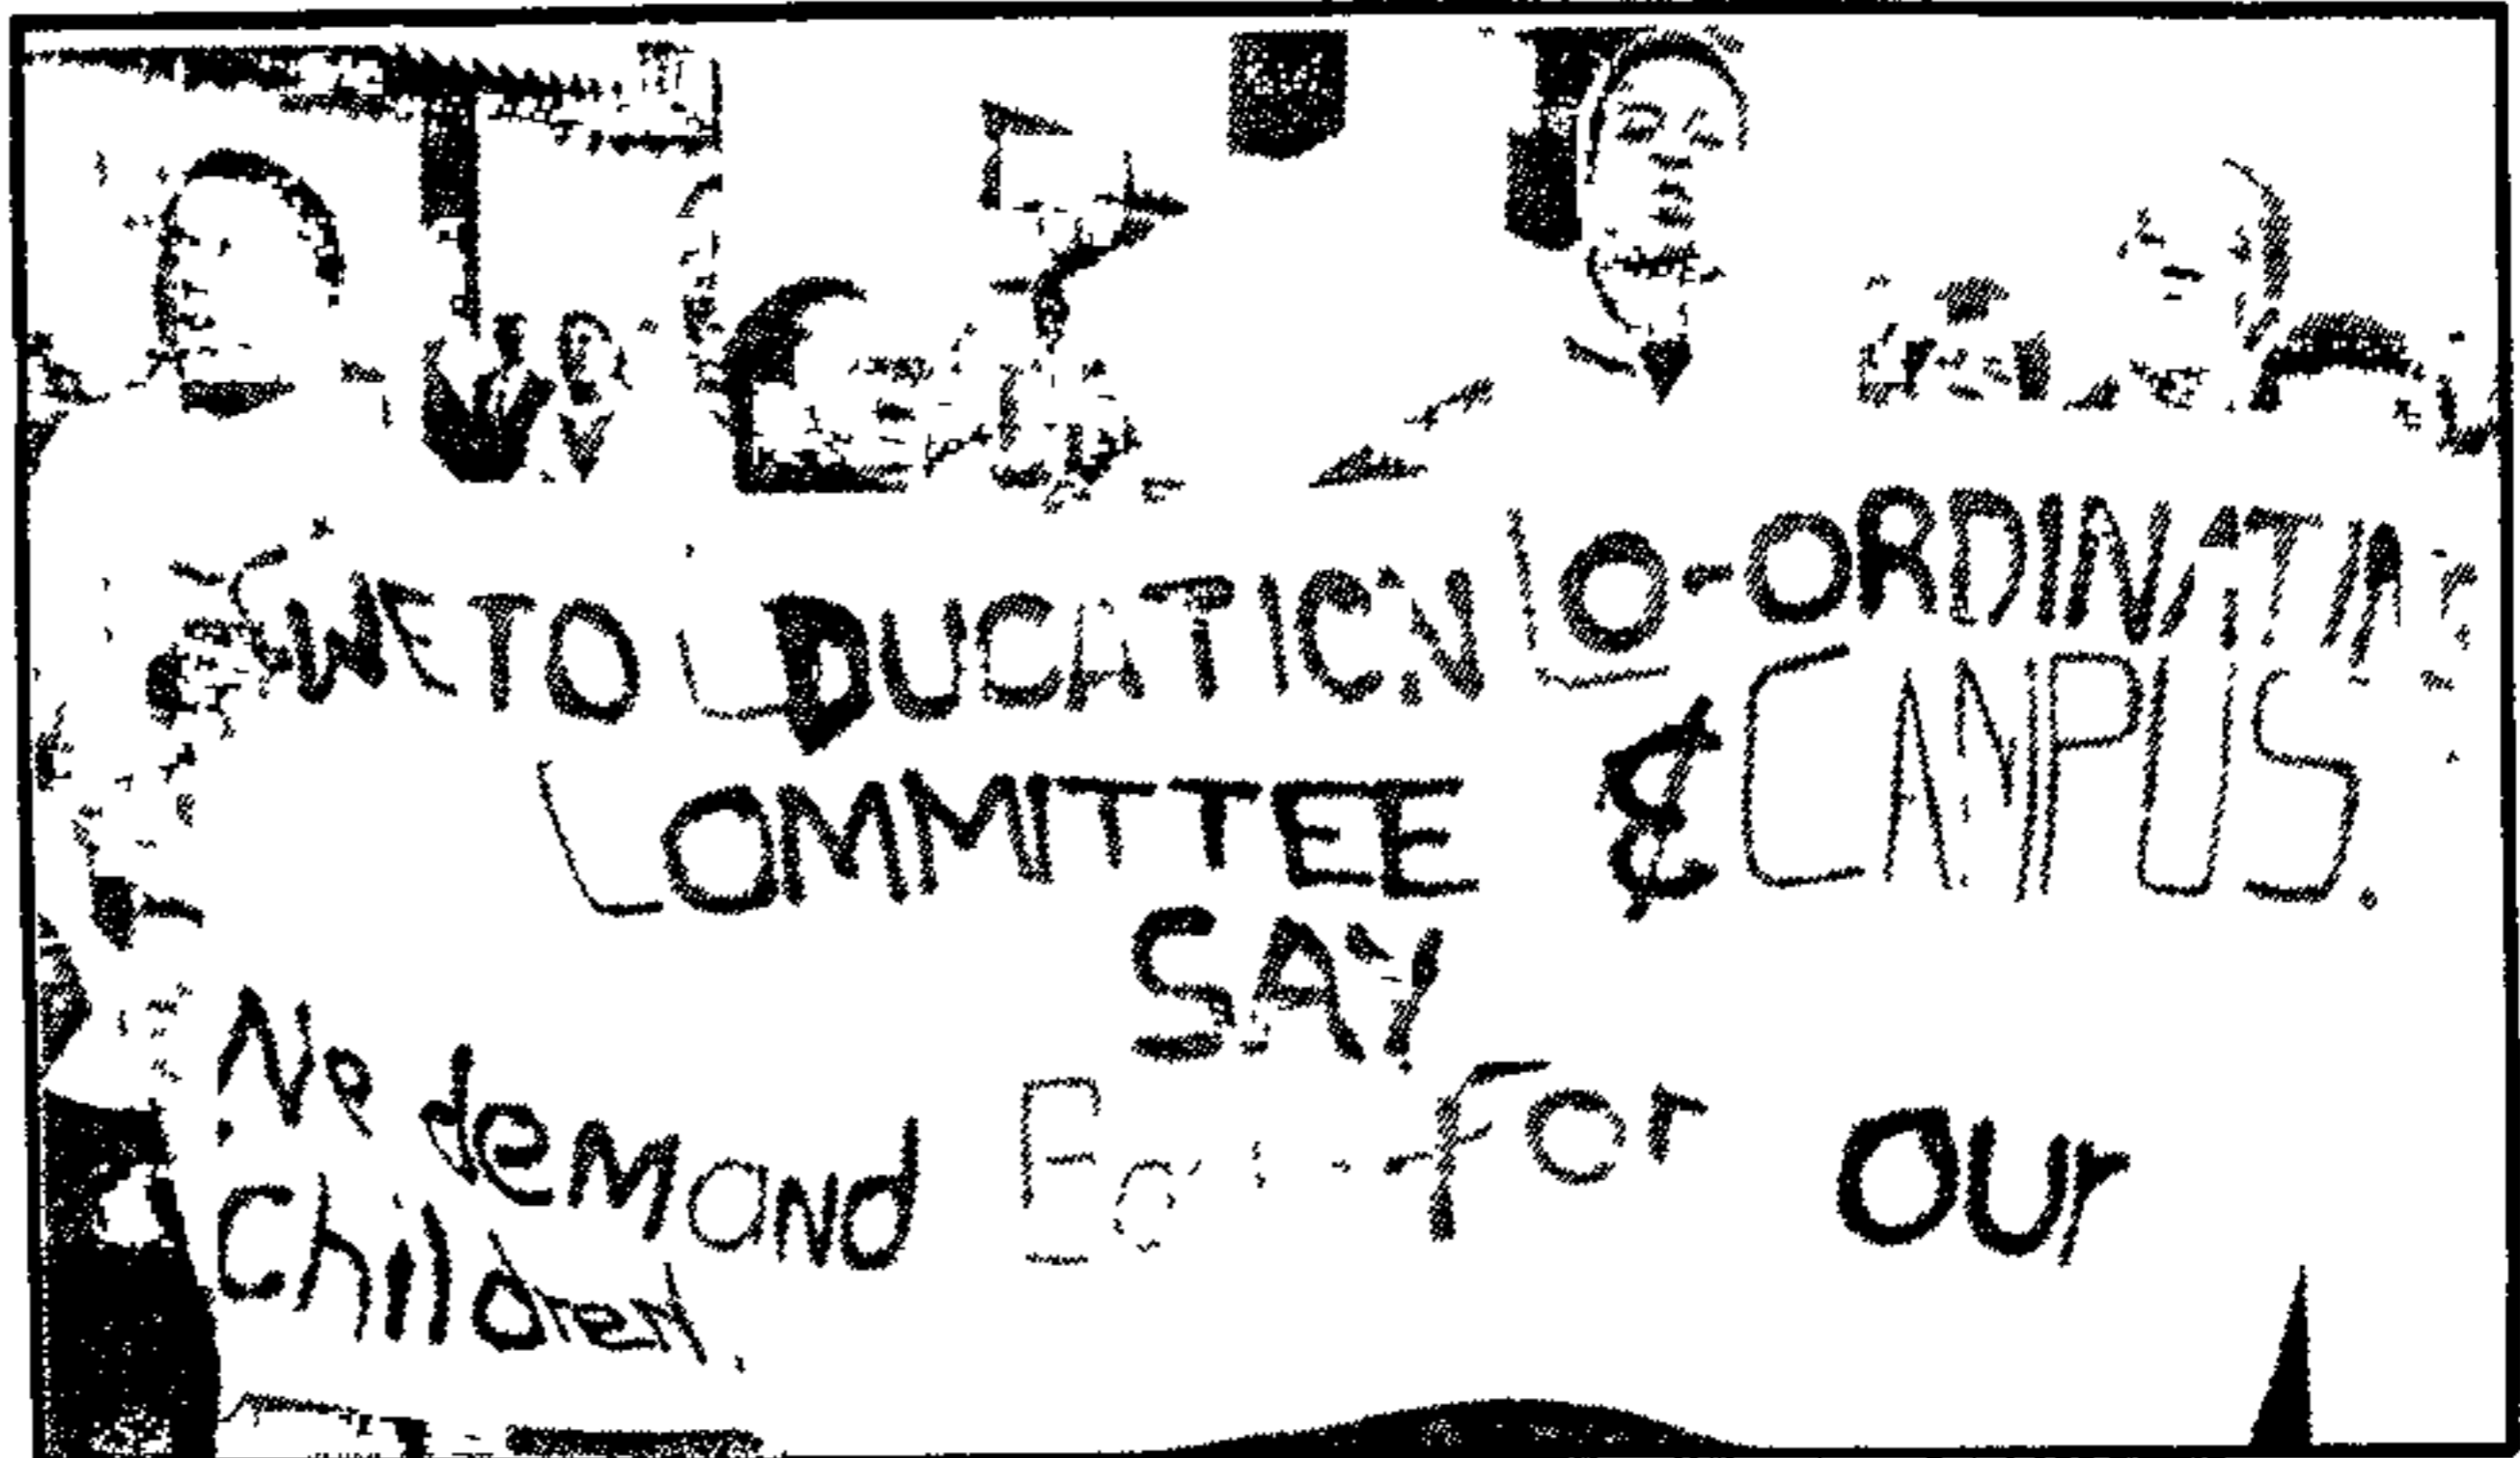 SOWETO EDUCATION CO-ORDINATING
COMMITTEE & CAMPUS.
SAY
We demand for our
Children.